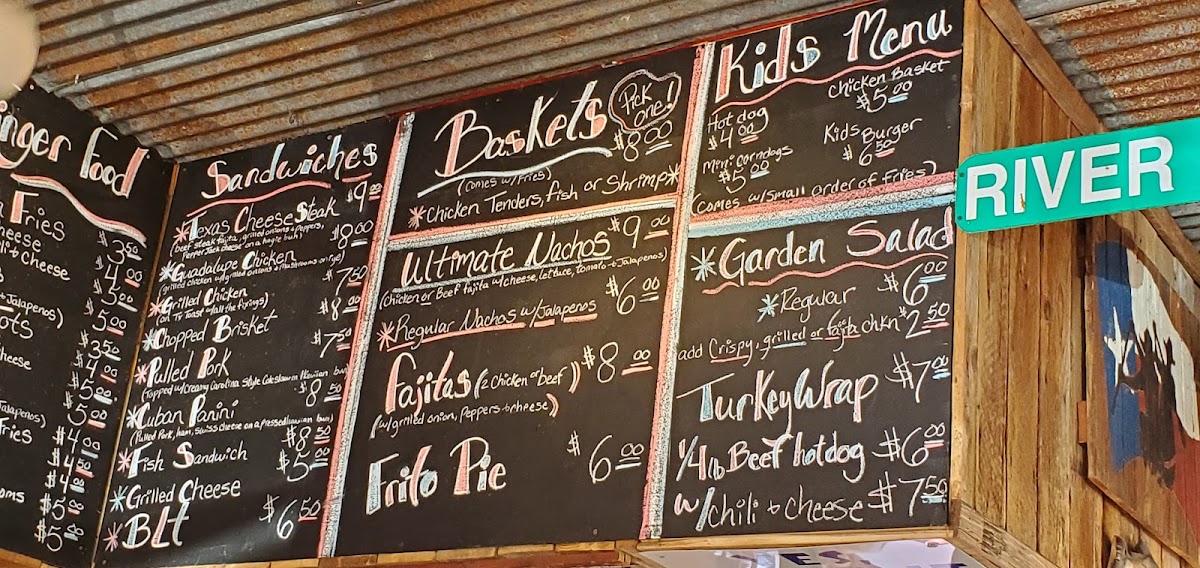 inger Food
Fries
$3.50
heese
$4.00
ili + cheese
$5.00
$5.00
Jalapenos)
ots
$3.50
$4.00
heese
$5.00
$5.00
Jalapenos)
Fries
$4.00
$4.50
$4.00
$5.00
ooms
$5.00
Sandwiches
*Texas Cheese Steak $9.00
(beef steak fajita, grilled onions & peppers,
Pepper Jack cheese on a hogie bun)
*Guadalupe Chicken $8.00
(grilled chicken w/grilled onions & mushrooms on rye)
*Grilled Chicken $7.50
(on Tx Toast w/all the fixings)
*Chopped Brisket $8.00
*Pulled Pork $7.50
(Topped w/Creamy Carolina Style Coleslaw on Hawiian bun)
*Cuban Panini $8.50
(Pulled Pork, ham, swiss cheese on a pressed hawiian bun)
*Fish Sandwich $8.50
*Grilled Cheese $5.00
*BLt $6.50
Baskets Pick one!
$8.00
(comes w/Fries)
*Chicken Tenders, fish or Shrimp*
Ultimate Nachos $9.00
(Chicken or Beef fajita w/cheese, lettuce, tomato + Jalapenos)
*Regular Nachos w/Jalapenos $6.00
Fajitas (2 Chicken or beef) $8.00
(w/grilled onion, peppers + cheese)
Frito Pie $6.00
Kids Menu
Hot dog
$4.00
Chicken Basket
$5.00
Mini Corndogs
$5.00
Kids Burger
$6.50
Comes w/small order of Fries)
*Garden Salad
*Regular $6.00
add Crispy, grilled or fajita chkn $2.50
Turkey Wrap $7.00
1/4 lb Beef hotdog $6.00
w/chili + cheese $7.50
RIVER